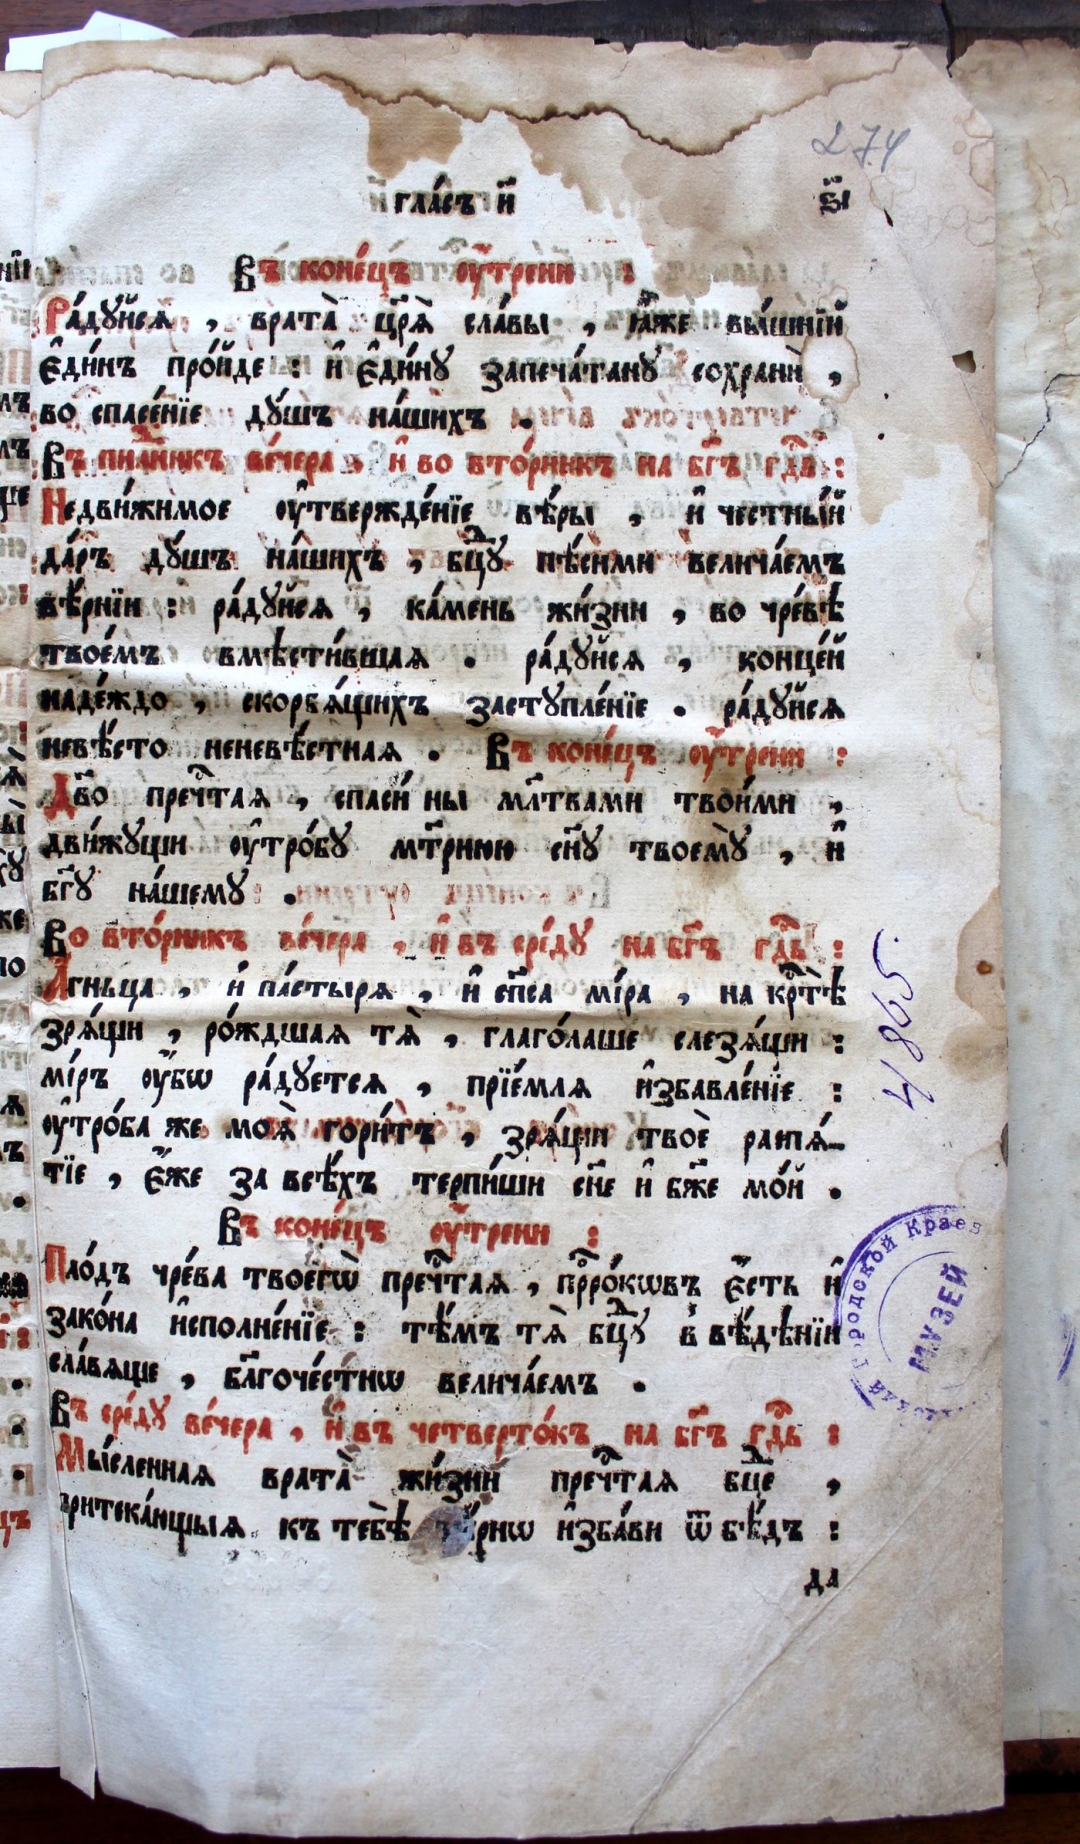 274
гла́съ и҃ в҃і
Въ коне́цъ ᲂу҆́трени :
Ра́дуйсѧ , врата̀ цр҃ѧ̀ сла́вы , ꙗ҆́же вы́шнїй
є҆ди́нъ про́йде : и҆ є҆ди́ну запеча́тану сохранѝ ,
во спасе́нїе ду́шъ на́шихъ .
Въ пн҃дникъ ве́чера , и҆ во вто́рникъ на бг҃ъ гд҇ь :
Недви́жимое ᲂу҆твержде́нїе вѣ́ры , и҆ честны́й
да́ръ ду́шъ на́шихъ , бцⷣу пѣ́сньми велича́емъ
вѣ́рнїи : ра́дуйсѧ , ка́мень жи́зни , во чре́вѣ
твое́мъ вмѣсти́вшаѧ . ра́дуйсѧ , конце́й
наде́ждо , скорбѧ́щихъ заступле́нїе . ра́дуйсѧ
невѣ́сто неневѣ́стнаѧ . Въ коне́цъ ᲂу҆́трени :
Дв҃о пречⷭ҇таѧ , спаси́ ны мл҃твами твои́ми ,
дви́жущи ᲂу҆тро́бу мт҃рнюю сн҃у твоемꙋ̀ , и҆
бг҃у на́шему .
Во вто́рникъ ве́чера , и҆ въ сре́ду на бг҃ъ гд҇ь :
Агньца , и҆ па́стырѧ , и҆ сп҃са мі́ра , на крⷭ҇тѣ̀
зрѧ́щи , ро́ждшаѧ тѧ̀ , глаго́лаше слезѧ́щи :
мі́ръ ᲂу҆́бѡ ра́дуетсѧ , прїе́млѧ и҆збавле́нїе :
ᲂу҆тро́ба же моѧ̀ гори́тъ , зрѧ́щи твоѐ распѧ́-
тїе , є҆́же за всѣ́хъ терпи́ши сн҃е и҆ бж҃е мо́й .
Въ коне́цъ ᲂу҆́трени :
Пло́дъ чре́ва твоегѡ̀ пречⷭ҇таѧ , прⷪ҇ро́кѡвъ є҆́сть и҆
зако́на и҆сполне́нїе : тѣ́мъ тѧ̀ бцⷣу в̾ вѣ́дѣнїи
сла́вѧще , бл҃гоче́стнѡ велича́емъ .
Въ сре́ду ве́чера , и҆ въ четверто́къ на бг҃ъ гд҇ь :
Мы́сленнаѧ врата̀ жи́зни пречⷭ҇таѧ бцⷣе ,
притека́ющыѧ къ тебѣ̀ вѣ́рнѡ и҆зба́ви ѿ бѣ́дъ :
да
4865.
Городской Краев
МУЗЕЙ